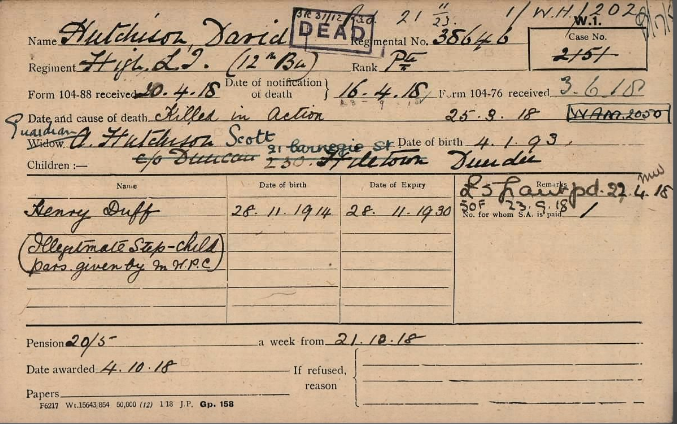 SR 31/12/30 21 11/23. 1/W.H/1202
DEAD
Name Hutchison, David Regimental No. 38646 W.1.
Regiment High. L.I. (12th Bn) Rank Pte Case No. 2151
Form 104-88 received 20.4.18 Date of notification of death 16.4.18 Form 104-76 received 3.6.18
Date and cause of death Killed in Action 25.3.18 W.A.M. 2050
Guardian
Widow. A. Hutchison Scott Date of birth 4.1.93.
c/o Duncan 21 Carnegie St
Children :— 230 Hilltown Dundee
Name Date of birth Date of Expiry Remarks
£5 Grant pd. 27.4.18
Henry Duff 28.11.1914 28.11.1930 SOF 23.9.18
No. for whom S.A. is paid 1
(Illegitimate Step-child
pars. given by M.W.P.C)
Pension 20/5 a week from 21.10.18
Date awarded 4.10.18 If refused, reason
Papers
F6217 Wt.15643/854 50,000 (12) 1/18 J.P. Gp. 158